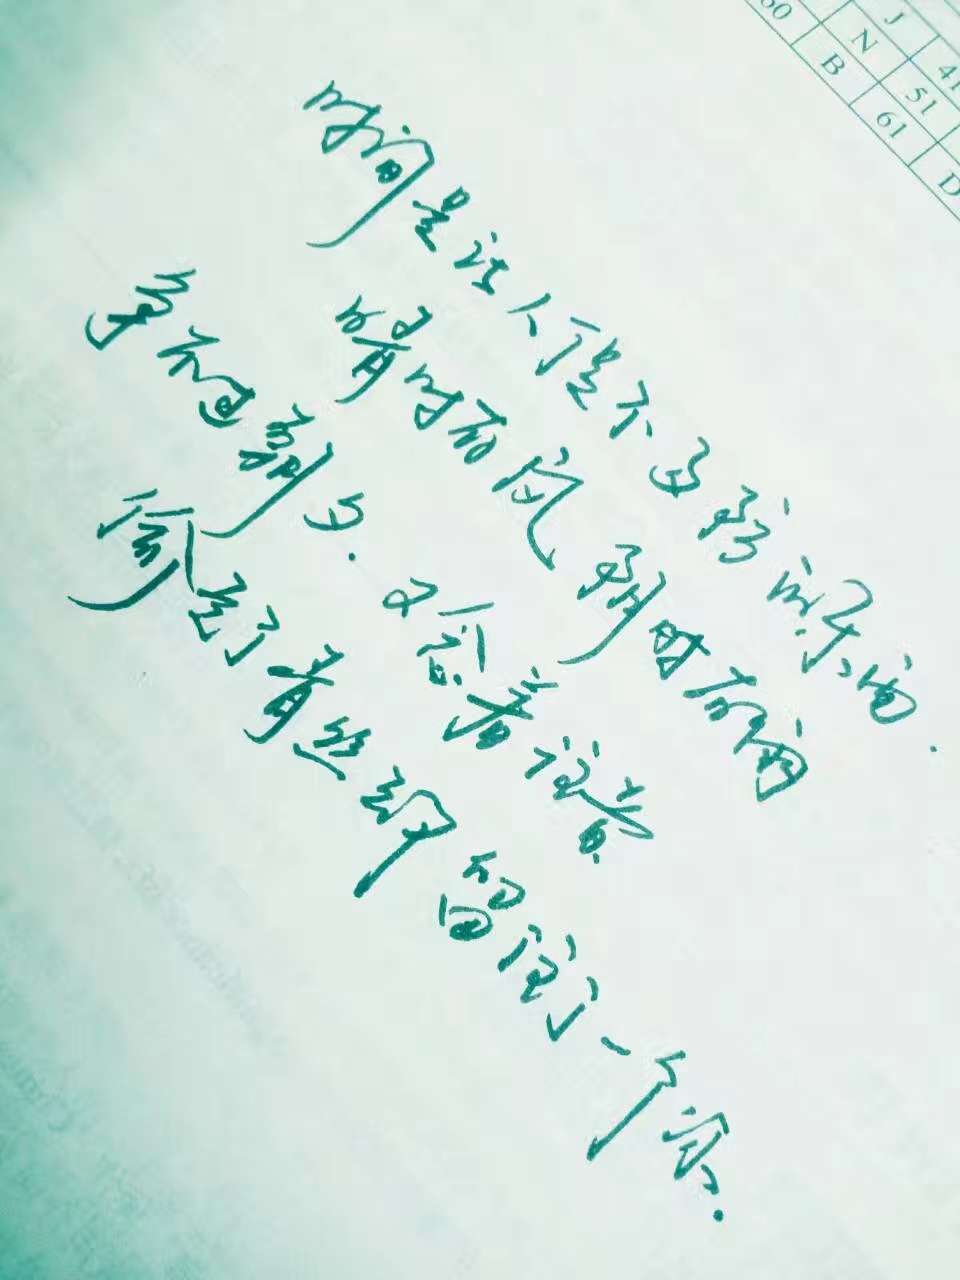 J 41
N 51
60 B 61 D
时间是让人猝不及防的东西.
晴时有风 阴时有雨
争不过朝夕.又念着往昔
偷走了青丝却留住了一个你.